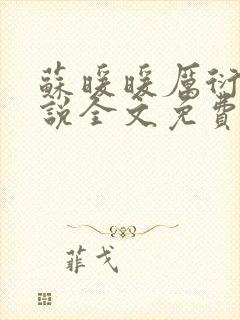 蘇暖暖厲衍
說全文免費
菲戈